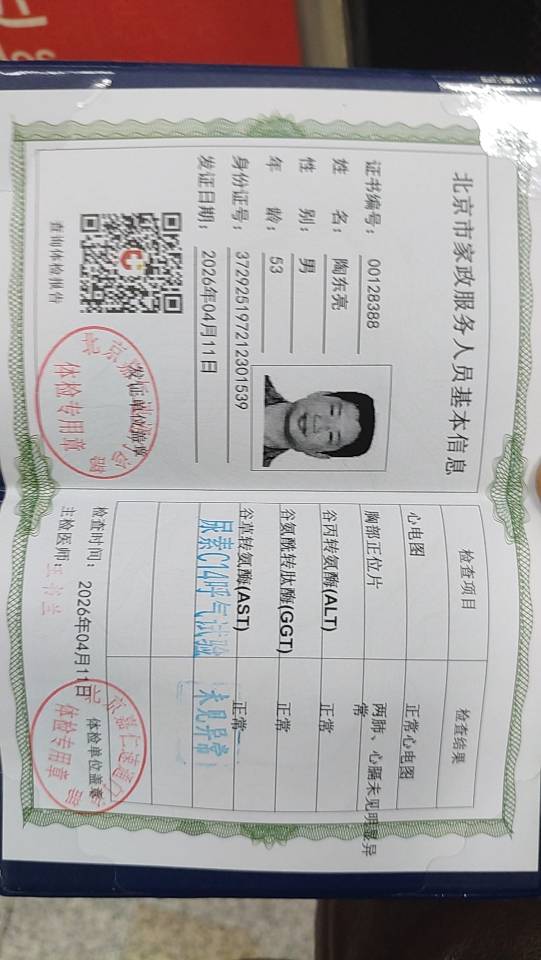 北京市家政服务人员基本信息
证书编号： 00128388
姓 名： 陶东亮
性 别： 男
年 龄： 53
身份证号： 372925197212301539
发证日期： 2026年04月11日
查询体检报告
发证单位盖章
体检专用章
检查项目 检查结果
心电图 正常心电图
胸部正位片 两肺、心膈未见明显异常
谷丙转氨酶(ALT) 正常
谷氨酰转肽酶(GGT) 正常
谷草转氨酶(AST) 正常
尿素C14呼气试验 未见异常
检查时间： 2026年04月11日
主检医师：
体检单位盖章
体检专用章